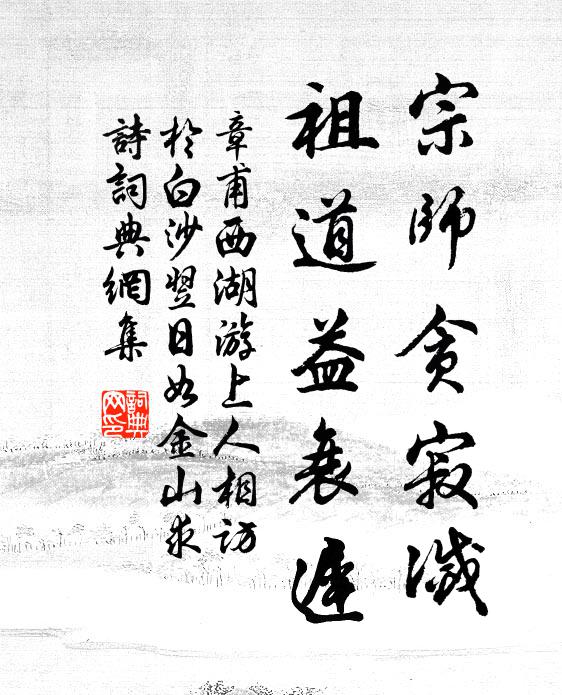 宗師貪寂滅
祖道益衰遲
章甫西湖游上人相訪
於白沙翌日如金山求
詩詞典網集
詞典
网印